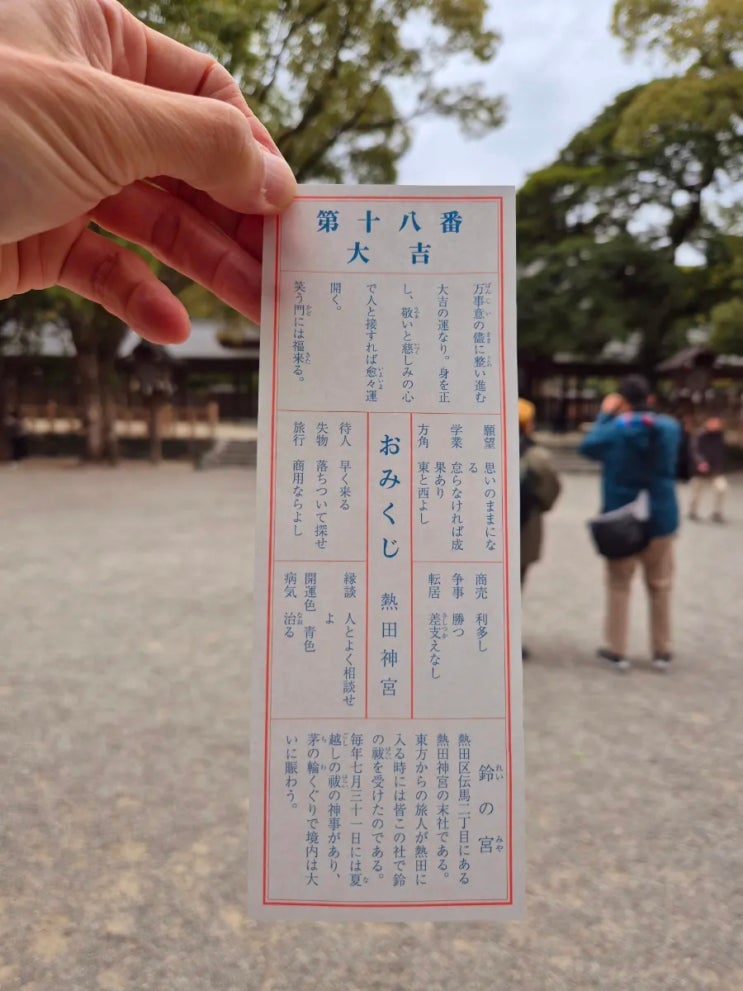 第十八番
大吉
万事意の儘に整い進む
大吉の運なり。身を正
し、敬いと慈しみの心
で人と接すれば愈々運
開く。
笑う門には福来る。
願望 思いのままにな
る
学業 怠らなければ成
果あり
方角 東と西よし
おみくじ 熱田神宮
待人 早く来る
失物 落ちついて探せ
旅行 商用ならよし
商売 利多し
争事 勝つ
転居 差支えなし
縁談 人とよく相談せ
よ
開運色 青色
病気 治る
鈴の宮
熱田区伝馬二丁目にある
熱田神宮の末社である。
東方からの旅人が熱田に
入る時には皆この社で鈴
の祓を受けたのである。
毎年七月三十一日には夏
越しの祓の神事があり、
茅の輪くぐりで境内は大
いに賑わう。